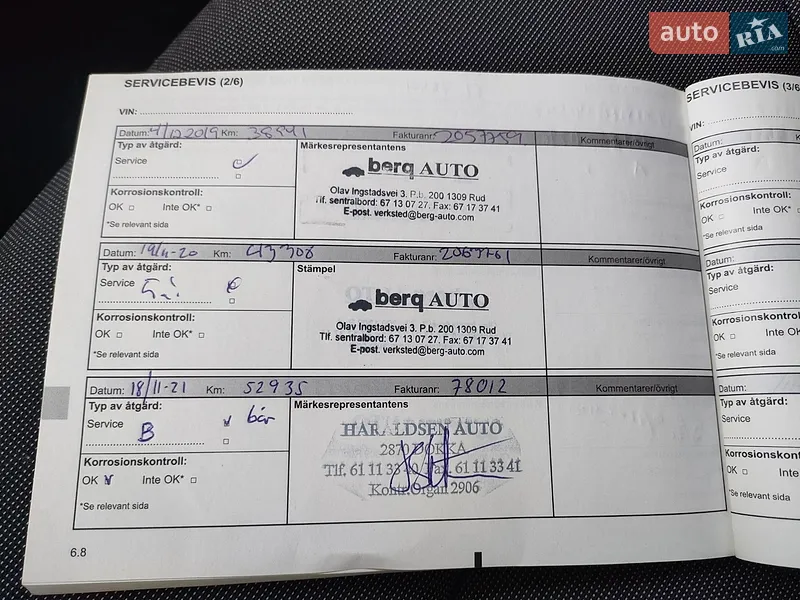 auto RIA .com
SERVICEBEVIS (2/6)
VIN:
Datum: 4/12 2019 Km: 38941 Fakturanr: 2057759 Kommentarer/övrigt
Typ av åtgärd: Märkesrepresentantens
Service
berg AUTO
Olav Ingstadsvei 3. P.b. 200 1309 Rud
Tlf. sentralbord: 67 13 07 27. Fax: 67 17 37 41
E-post. verksted@berg-auto.com
Korrosionskontroll:
OK Inte OK*
*Se relevant sida
Datum: 19/11-20 Km: 43308 Fakturanr: Kommentarer/övrigt
Typ av åtgärd: Stämpel
Service
berg AUTO
Olav Ingstadsvei 3. P.b. 200 1309 Rud
Tlf. sentralbord: 67 13 07 27. Fax: 67 17 37 41
E-post. verksted@berg-auto.com
Korrosionskontroll:
OK Inte OK*
*Se relevant sida
Datum: 18/11-21 Km: 52935 Fakturanr: 78012 Kommentarer/övrigt
Typ av åtgärd: Märkesrepresentantens
Service B
HARALDSEN AUTO
2870 DOKKA
Tlf. 61 11 33 40 Fax. 61 11 33 41
Kontr.Organ 2906
Korrosionskontroll:
OK Inte OK*
*Se relevant sida
6.8
SERVICEBEVIS (3/6
VIN:
Datum:
Typ av åtgärd:
Service
Korrosionskontroll:
OK Inte OK*
*Se relevant sida
Datum:
Typ av åtgärd:
Service
Korrosionskontroll
OK Inte OK*
*Se relevant sida
Datum:
Typ av åtgärd:
Service
Korrosionskont
OK Inte
*Se relevant sida